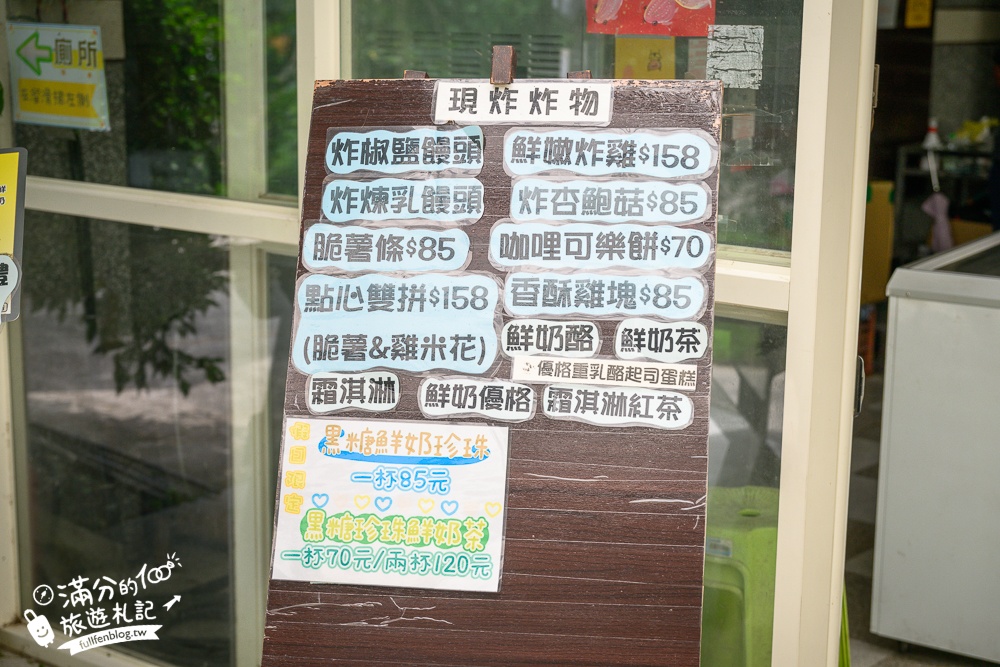 廁所
現炸炸物
炸椒鹽饅頭
鮮嫩炸雞$158
炸煉乳饅頭
炸杏鮑菇$85
脆薯條$85
咖哩可樂餅$70
點心雙拼$158
(脆薯&雞米花)
香酥雞塊$85
鮮奶酪
鮮奶茶
優格重乳酪起司蛋糕
霜淇淋
鮮奶優格
霜淇淋紅茶
黑糖鮮奶珍珠
一杯85元
黑糖珍珠鮮奶茶
一杯70元/兩杯120元
滿分的100
旅遊札記
fullfenblog.tw